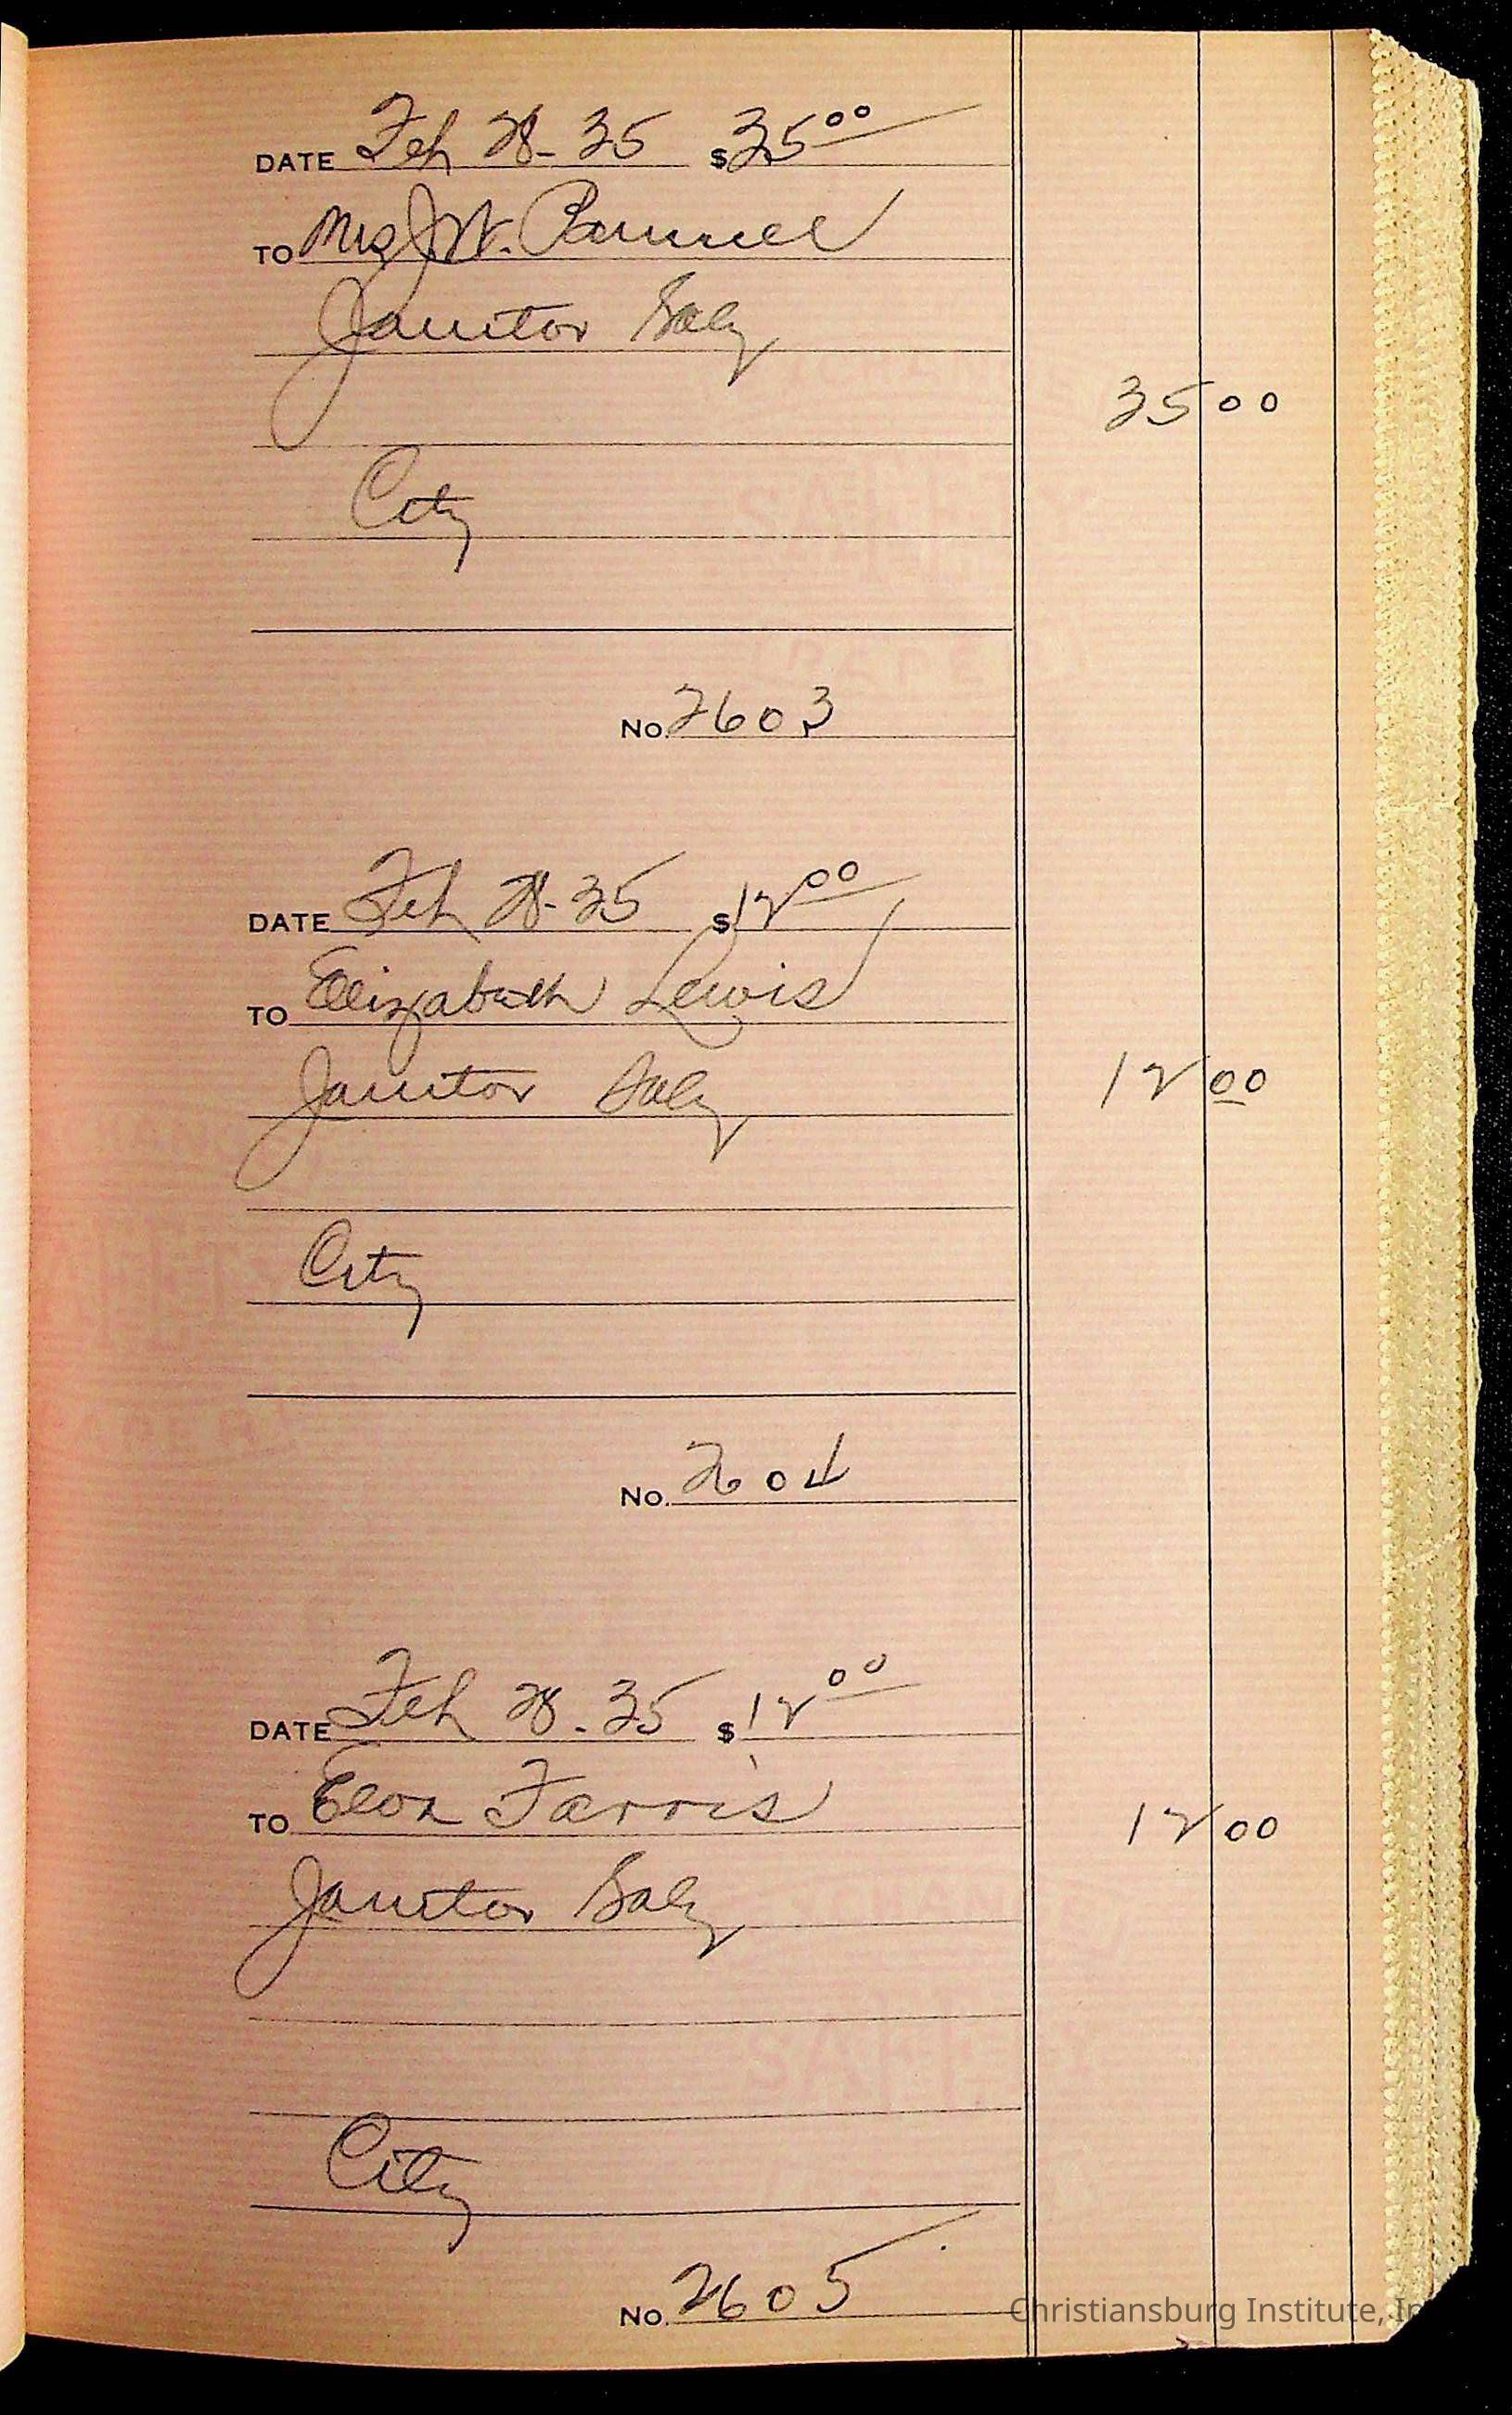 DATE Feb 28-35 $35 00
TO Mrs J.W.
Janitor Saly
35 00
City
No. 2603
DATE Feb 28-35 $12 00
TO Elizabeth Lewis
Janitor Saly
12 00
City
No. 2604
DATE Feb 28-35 $12 00
TO Farris
12 00
Janitor Saly
City
No. 2605
Christiansburg Institute, In